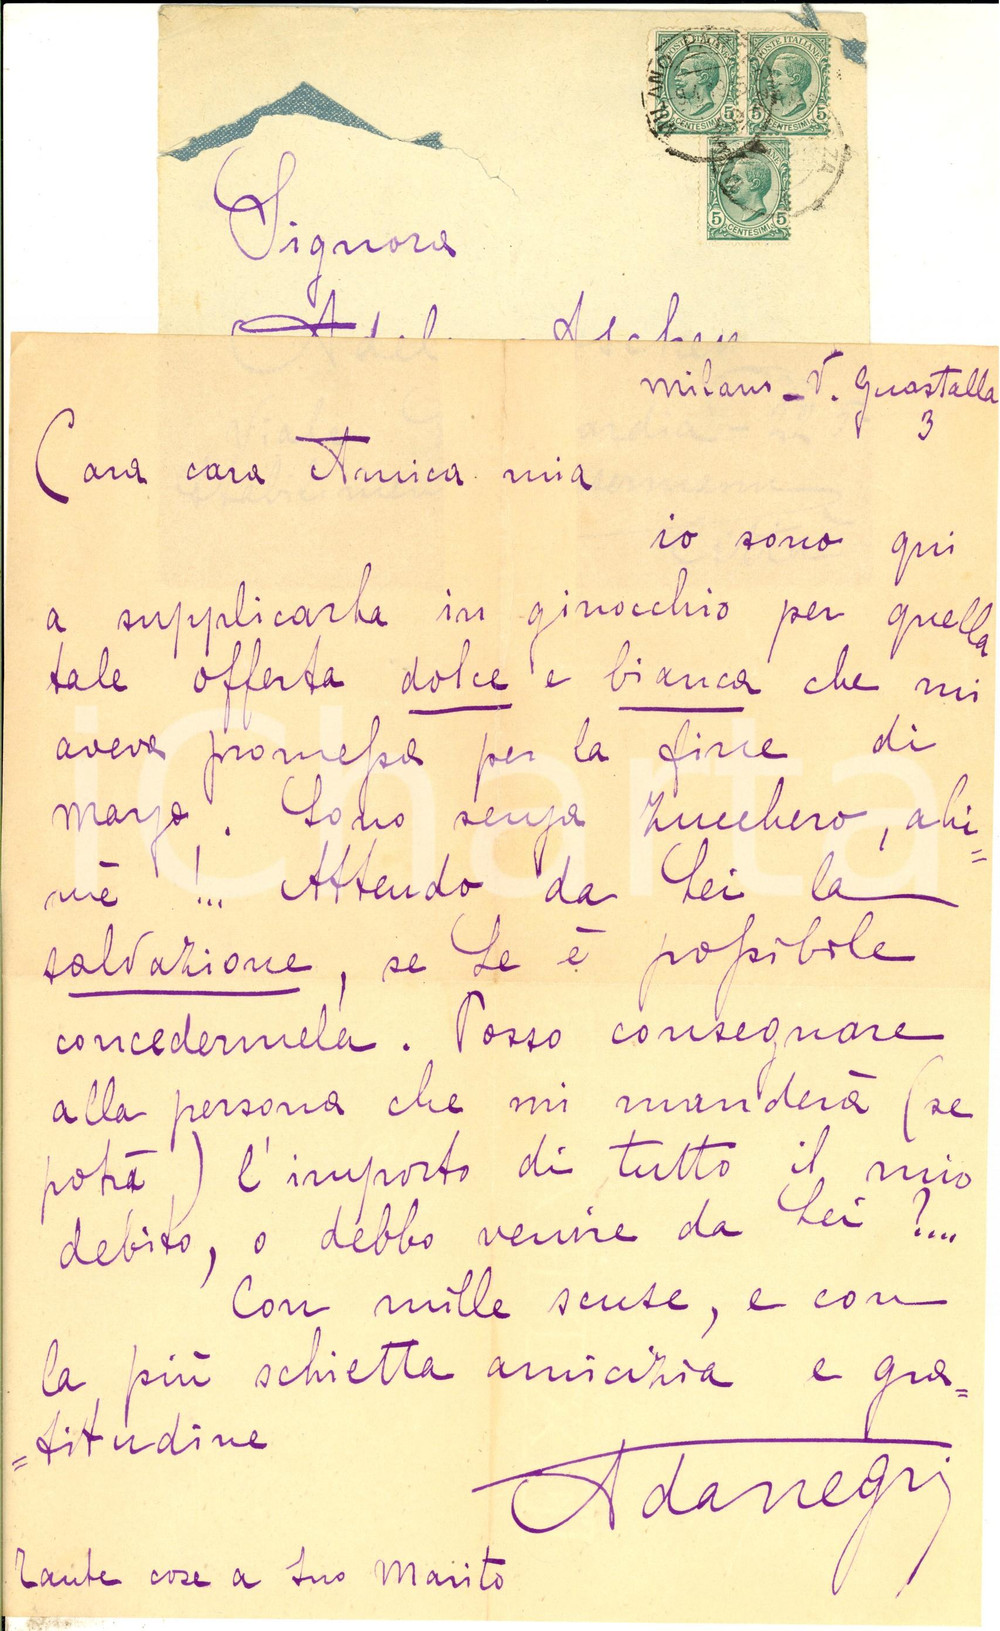 POSTE ITALIANE
POSTE ITALIANE
5 CENTESIMI 5
5 CENTESIMI 5
5 CENTESIMI 5
MILANO
Signora
Milano - V. Guastalla
3
Cara cara Amica mia
io sono qui
a supplicarla in ginocchio per quella
tale offerta dolce e bianca che mi
aveva promessa per la fine di
marzo. Sono senza zucchero, ahi=
mè !... Attendo da Lei la
salvazione, se Le è possibile
concedermela. Posso consegnare
alla persona che mi manderà (se
potrà) l'importo di tutto il mio
debito, o debbo venire da Lei ?...
Con mille scuse, e con
la più schietta amicizia e gra=
=titudine
Adanegri
Tante cose a Suo Marito
iCharta